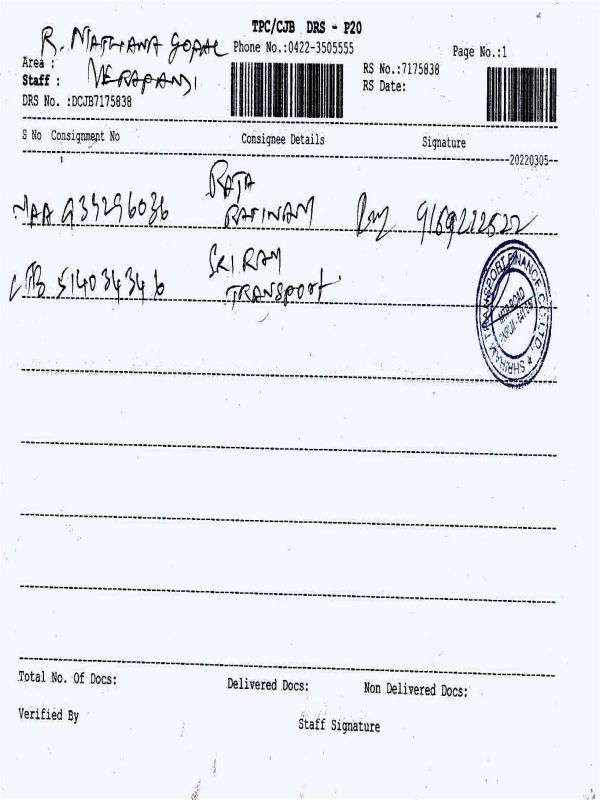 TPC/CJB DRS - P20
Phone No.:0422-3505555
Page No.:1
Area :
Staff :
VERAPANDI
DRS No. :DCJB7175838
RS No.:7175838
RS Date:
S No Consignment No
Consignee Details
Signature
1
--20220305--
RAJA
MAA 934296036
RATINAM
SRI RAM
CJB 514034346
TRANSPORT
SHRIRAM TRANSPORT FINANCE CO. LTD.
Total No. Of Docs:
Delivered Docs:
Non Delivered Docs:
Verified By
Staff Signature